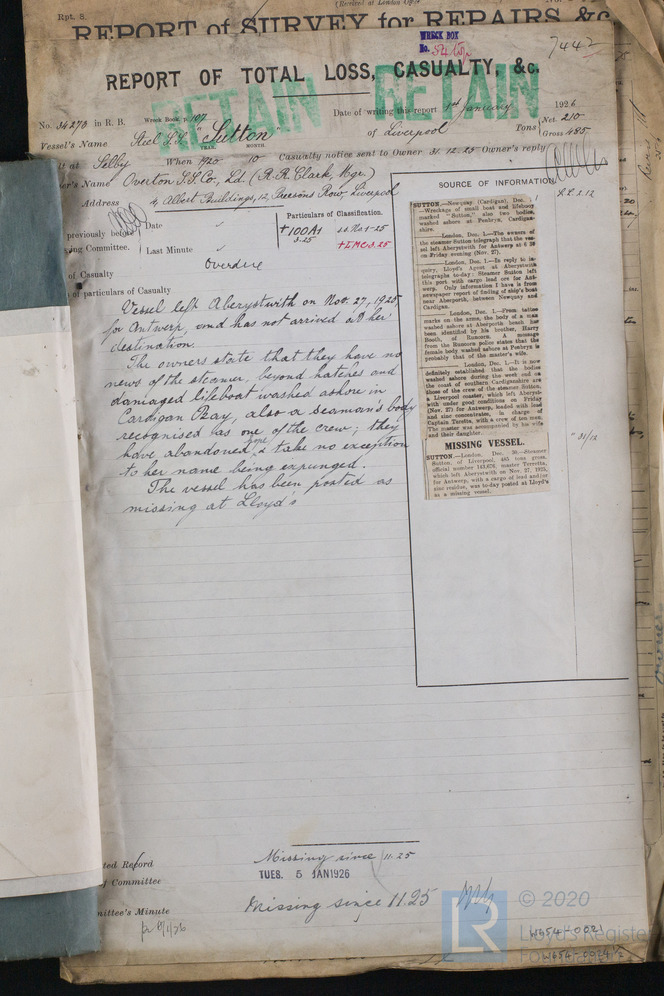 Rpt. 8.
REPORT of SURVEY for REPAIRS, &c
WRECK BOX
No.
7442
REPORT OF TOTAL LOSS, CASUALTY, &c.
RETAIN RETAIN
No. 34273 in R. B. Wreck Book, p. 107 Date of writing this report 1st January 1926
Vessel's Name Steel S.S. "Sutton" of Liverpool Tons Net. 210
Gross 485
YEAR MONTH
at Selby When 1920 10 Casualty notice sent to Owner 31.12.25 Owner's reply
er's Name Overton S.S. Co., Ld. (R.R. Clark, Mgr.)
Address 4, Albert Buildings, 12, Preesons Row, Liverpool
previously before
ing Committee.
Date
Last Minute
Particulars of Classification.
+100A1
3.25
+LMC 3.25
of Casualty Overdue
of particulars of Casualty
Vessel left Aberystwith on Nov. 27, 1925
for Antwerp, and has not arrived at her
destination
The owners state that they have no
news of the steamer, beyond hatches and
damaged lifeboat washed ashore in
Cardigan Bay, also a seaman's body
recognised as one of the crew; they
have abandoned hope & take no exception
to her name being expunged.
The vessel has been posted as
missing at Lloyd's
SOURCE OF INFORMATION
SUTTON.—Newquay (Cardigan), Dec. 1
—Wreckage of small boat and lifebuoy
marked "Sutton," also two bodies,
washed ashore at Penbryn, Cardigan-
shire.
London, Dec. 1.—The owners of
the steamer Sutton telegraph that the ves-
sel left Aberystwith for Antwerp at 6 30
on Friday evening (Nov. 27).
London, Dec. 1.—In reply to in-
quiry, Lloyd's Agent at Aberystwith
telegraphs to-day: Steamer Sutton left
this port with cargo lead ore for Ant-
werp. Only information I have is from
newspaper report of finding of ship's boat
near Aberporth, between Newquay and
Cardigan.
London, Dec. 1.—From tattoo
marks on the arms, the body of a man
washed ashore at Aberporth beach has
been identified by his brother, Harry
Booth, of Runcorn. A message
from the Runcorn police states that the
female body washed ashore at Penbryn is
probably that of the master's wife.
London, Dec. 1.—It is now
definitely established that the bodies
washed ashore during the week end on
the coast of southern Cardiganshire are
those of the crew of the steamer Sutton,
a Liverpool coaster, which left Aberyst-
with under good conditions on Friday
(Nov. 27) for Antwerp, loaded with lead
and zinc concentrates, in charge of
Captain Taretta, with a crew of ten men.
The master was accompanied by his wife
and their daughter.
MISSING VESSEL.
SUTTON.—London, Dec. 30.—Steamer
Sutton, of Liverpool, 485 tons gross,
official number 143,676, master Terretta,
which left Aberystwith on Nov. 27, 1925,
for Antwerp, with a cargo of lead and/or
zinc residue, was to-day posted at Lloyd's
as a missing vessel.
" 31/12
ted Record Missing since 11.25
Committee TUES. 5 JAN 1926
mittee's Minute Missing since 11.25
LR © 2020
Lloyd's Register
Foundation
W654-0021